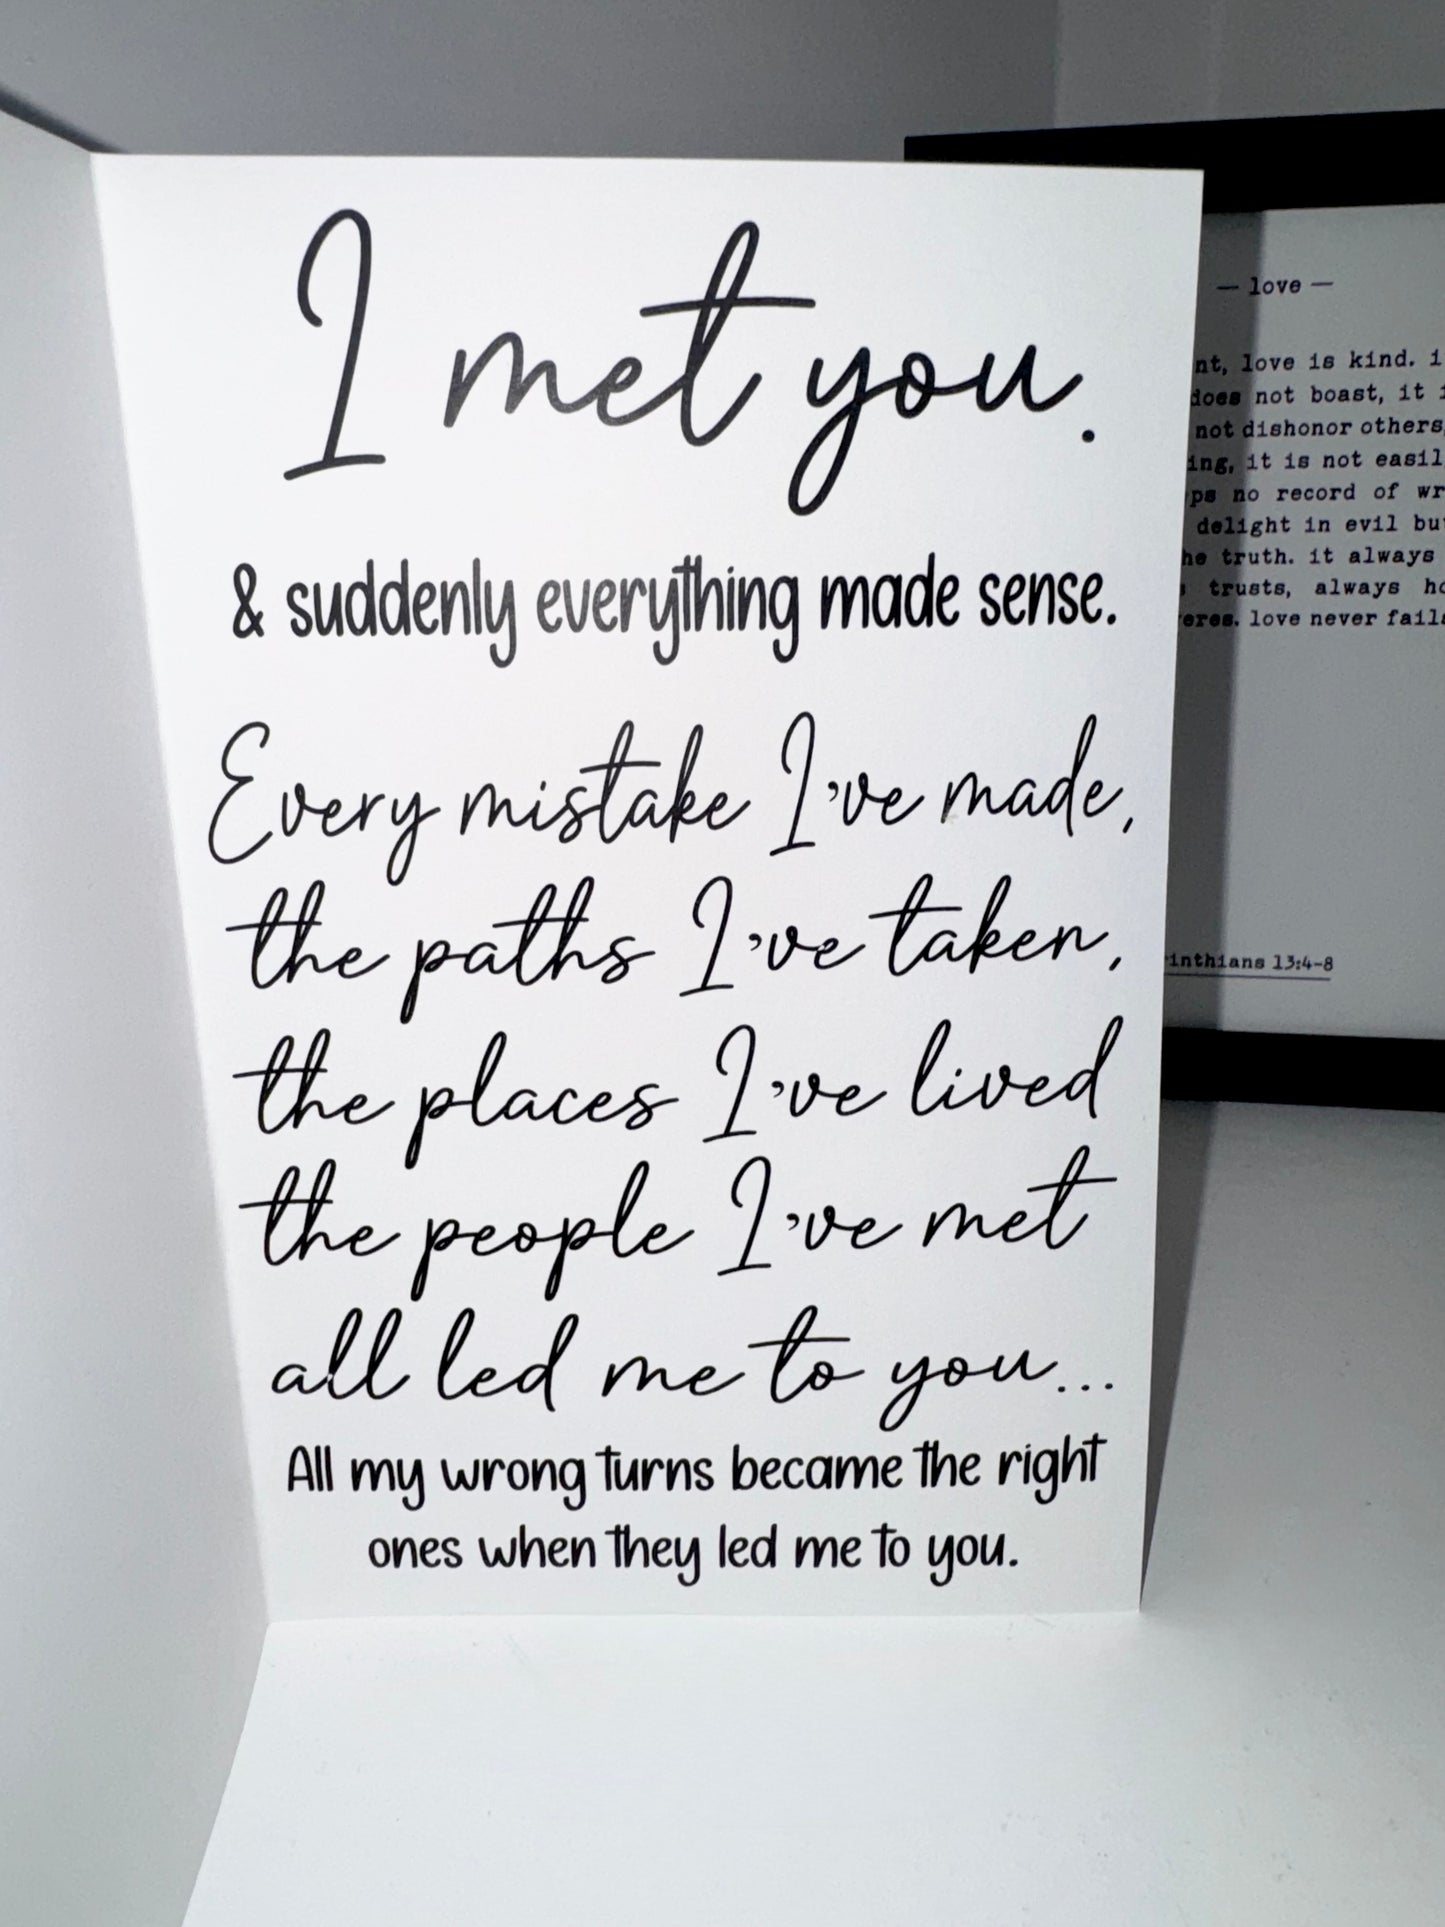 I met you.
& suddenly everything made sense.
Every mistake I've made,
the paths I've taken,
the places I've lived
the people I've met
all led me to you...
All my wrong turns became the right
ones when they led me to you.
— love —
love is kind.
does not boast, it
not dishonor others,
it is not easil
no record of wr
delight in evil but
truth. it always
trusts, always ho
love never fails
13:4-8